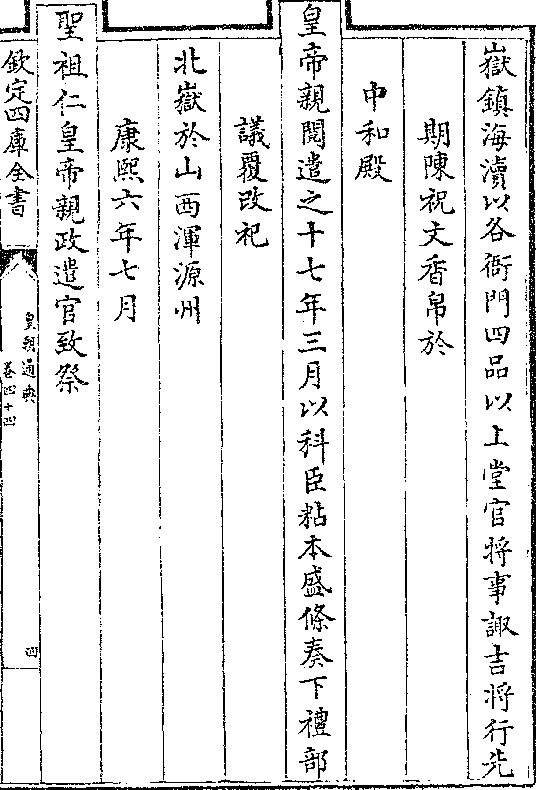 嶽鎮海瀆以各衙門四品以上堂官將事諏吉將行先
期陳祝文香帛於
中和殿
皇帝親閱遣之十七年三月以科臣粘本盛條奏下禮部
議覆改祀
北嶽於山西渾源州
康熙六年七月
聖祖仁皇帝親政遣官致祭
欽定四庫全書
皇朝通典
卷四十四
四